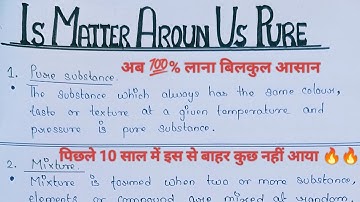 IS MATTER AROUN US PURE
1. Pure substance.
अब 💯% लाना बिलकुल आसान
• The substance which always has the same colour,
taste or texture at a given temperature and
pressure is pure substance.
पिछले 10 साल में इस से बाहर कुछ नहीं आया 🔥🔥
2. Mixture.
• Mixture is formed when two or more substance,
elements or compound are mixed at random